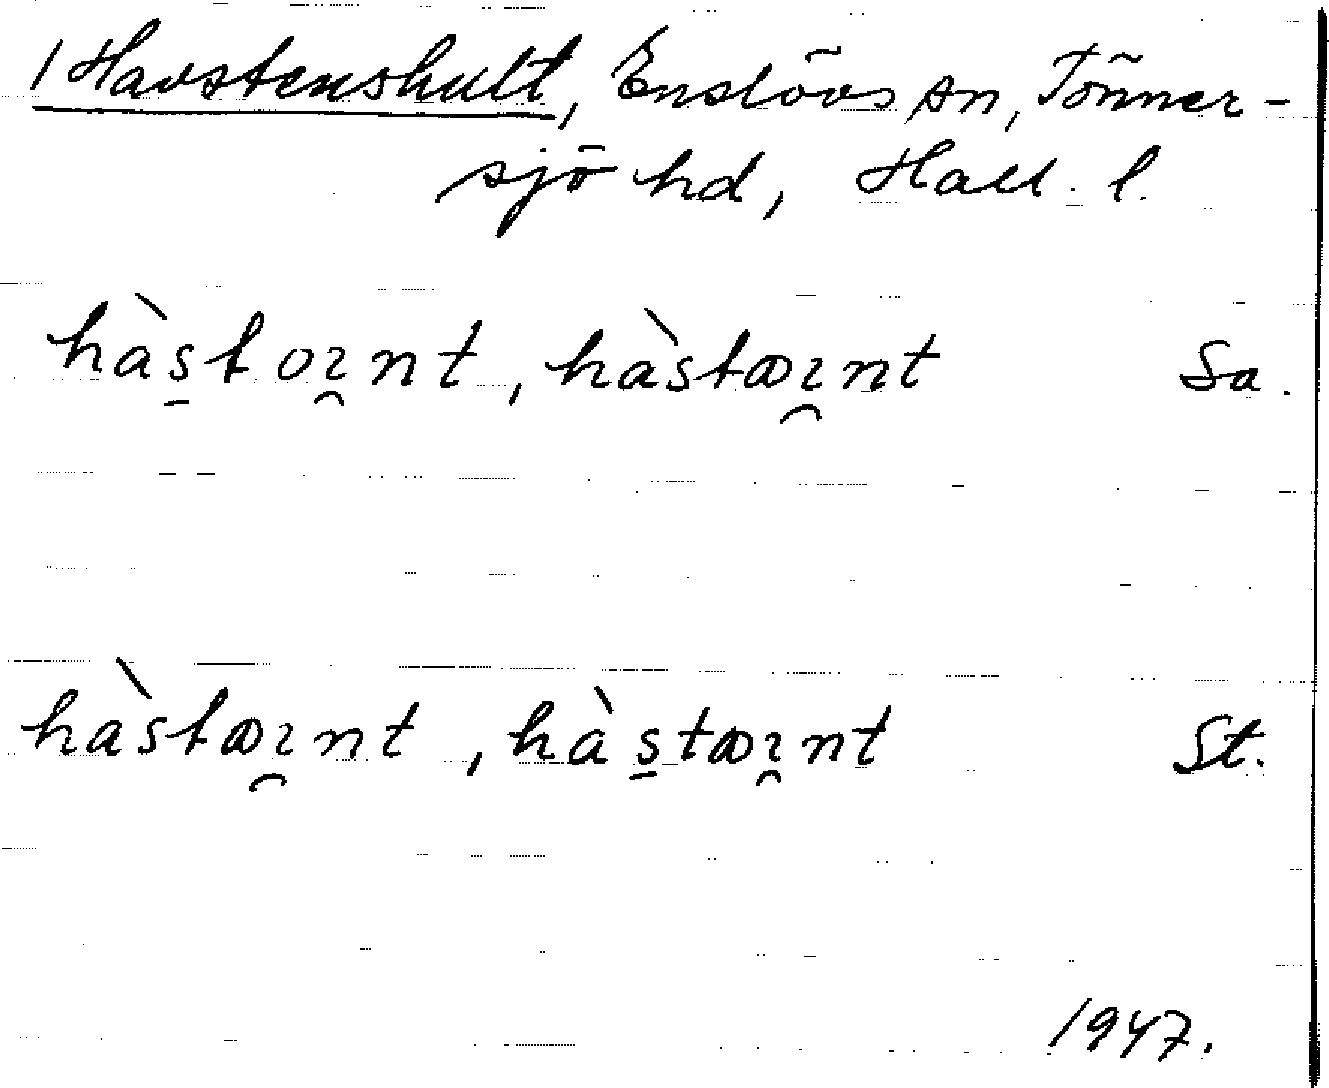 / Havstenshult, Enslövs sn, Tönner-
sjö hd, Hall. l.
hàs̱toɿ̯nt, hàstꝏɿ̯nt Sa.
hàstꝏɿ̯nt, hàs̱tꝏɿ̯nt St.
1947.